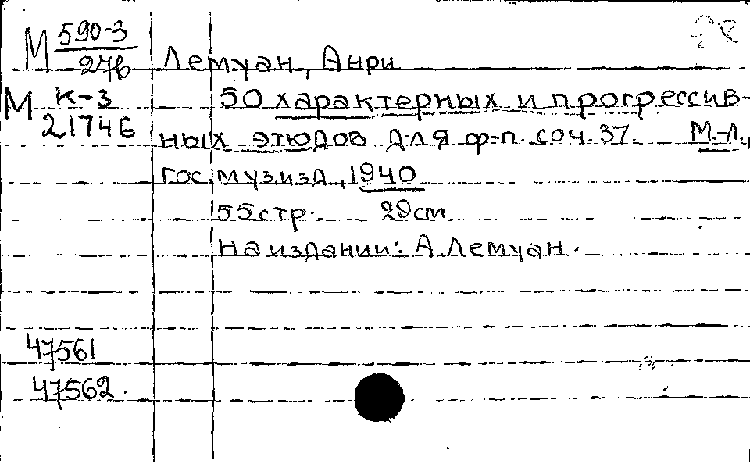 М 590-3
276
Лемуан, Анри
М К-3
21746
50 характерных и прогрессив-
ных этюдов для ф-п. соч. 37. М.-Л.,
гос. музизд, 1940
55 стр. 29 см
На издании: А. Лемуан.
47561
47562.